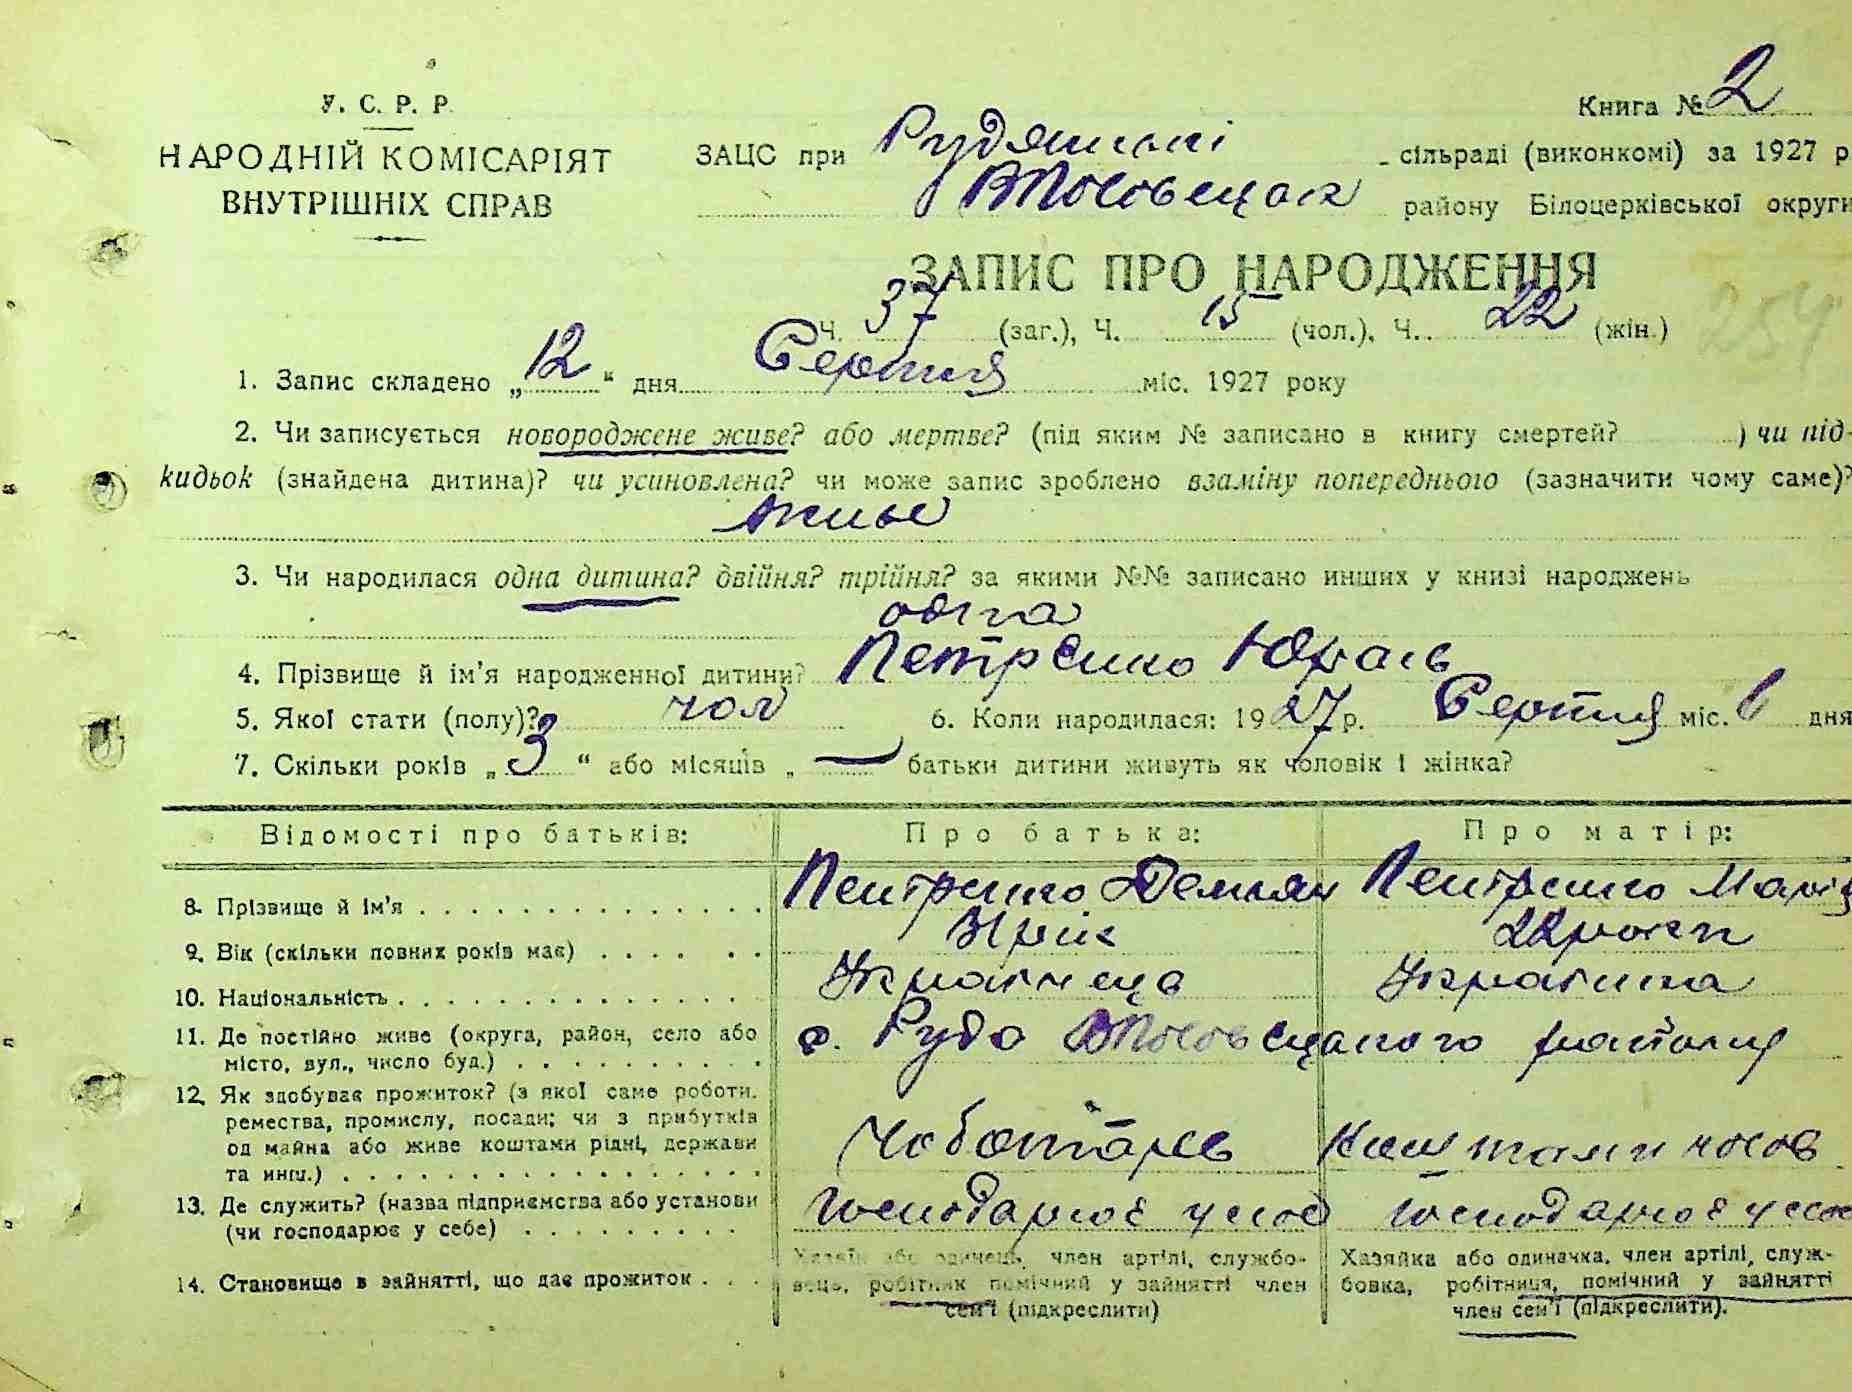 У. С. Р. Р.
Книга № 2
НАРОДНІЙ КОМІСАРІЯТ
ВНУТРІШНІХ СПРАВ
ЗАЦС при Рудянській сільраді (виконкомі) за 1927 р
району Білоцерківської округи
ЗАПИС ПРО НАРОДЖЕННЯ
Ч. 37 (заг.), Ч. 15 (чол.), Ч. 22 (жін.)
254
1. Запис складено „12“ дня Серпня міс. 1927 року
2. Чи записується новороджене живе? або мертве? (під яким № записано в книгу смертей? ) чи під-
кидьок (знайдена дитина)? чи усиновлена? чи може запис зроблено взаміну попереднього (зазначити чому саме)?
живе
3. Чи народилася одна дитина? двійня? трійня? за якими №№ записано инших у книзі народжень
одна
4. Прізвище й ім'я народженної дитини? Петренко
5. Якої стати (полу)? чол 6. Коли народилася: 1927 р. Серпня міс. 6 дня
7. Скільки років „3“ або місяців „ — батьки дитини живуть як чоловік і жінка?
Відомості про батьків: Про батька: Про матір:
8. Прізвище й ім'я Петренко Демян Петренко Марія
9. Вік (скільки повних років має) рік 22 роки
10. Національність Українець Українка
11. Де постійно живе (округа, район, село або
місто, вул., число буд.) с. Руда району
12. Як здобуває прожиток? (з якої саме роботи.
ремества, промислу, посади; чи з прибутків
од майна або живе коштами рідні, держави
та инш.) Чоботарь Коштами чолов
13. Де служить? (назва підприємства або установи
(чи господарює у себе) Господарює у себе Господарює у себе
14. Становище в зайнятті, що дає прожиток
Хазяїн або одинець, член артілі, службо-
вець, робітник помічний у зайнятті член
сем'ї (підкреслити)
Хазяйка або одиначка, член артілі, служ-
бовка, робітниця, помічний у зайнятті
член сем'ї (підкреслити).